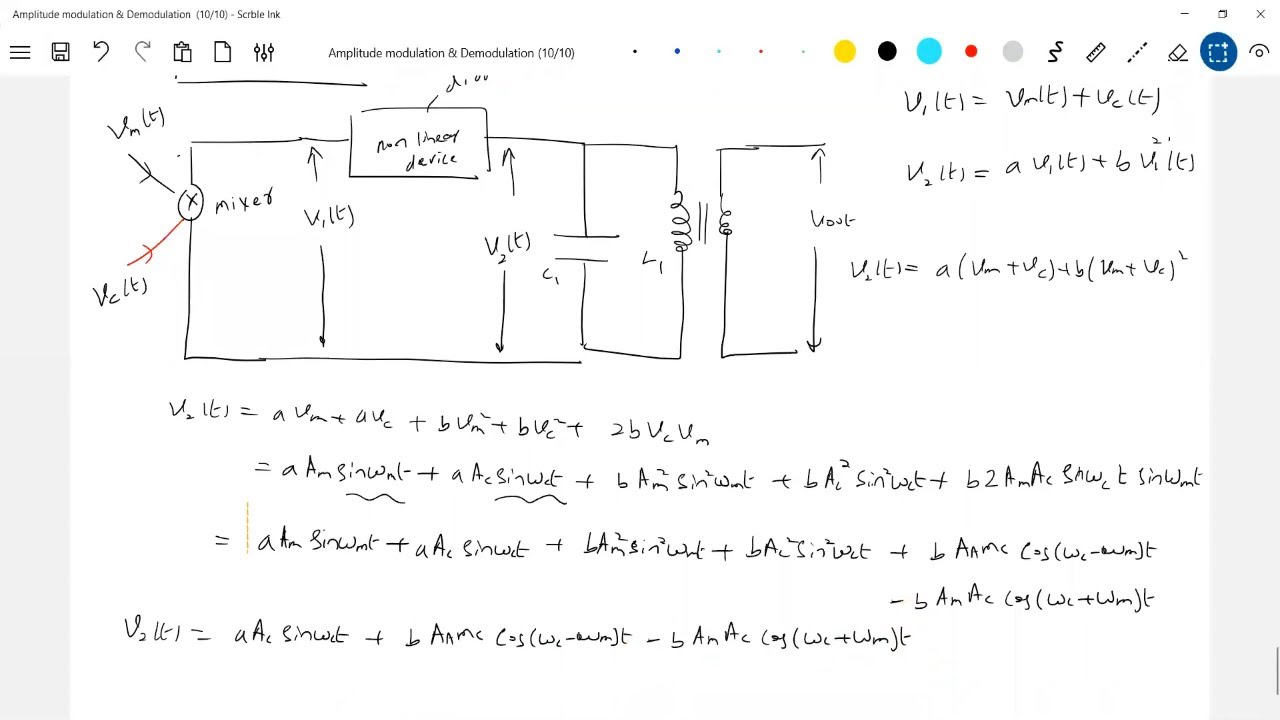 Amplitude modulation & Demodulation (10/10) - Scrble Ink
Amplitude modulation & Demodulation (10/10)
Vm(t)
non linear
device
mixer
V1(t)
V2(t)
C1
L1
Vout
Vc(t)
V1(t) = Vm(t) + Vc(t)
V2(t) = a V1(t) + b V1²(t)
V2(t) = a(Vm + Vc) + b(Vm + Vc)²
V2(t) = a Vm + a Vc + b Vm² + b Vc² + 2b Vc Vm
= a Am sinωmt + a Ac sinωct + b Am² sin²ωmt + b Ac² sin²ωct + b 2 Am Ac sinωc t sinωmt
= a Am sinωmt + a Ac sinωct + b Am² sin²ωmt + b Ac² sin²ωct + b AmAc cos(ωc-ωm)t
- b Am Ac cos(ωc+ωm)t
V2(t) = a Ac sinωct + b AmAc cos(ωc-ωm)t - b Am Ac cos(ωc+ωm)t